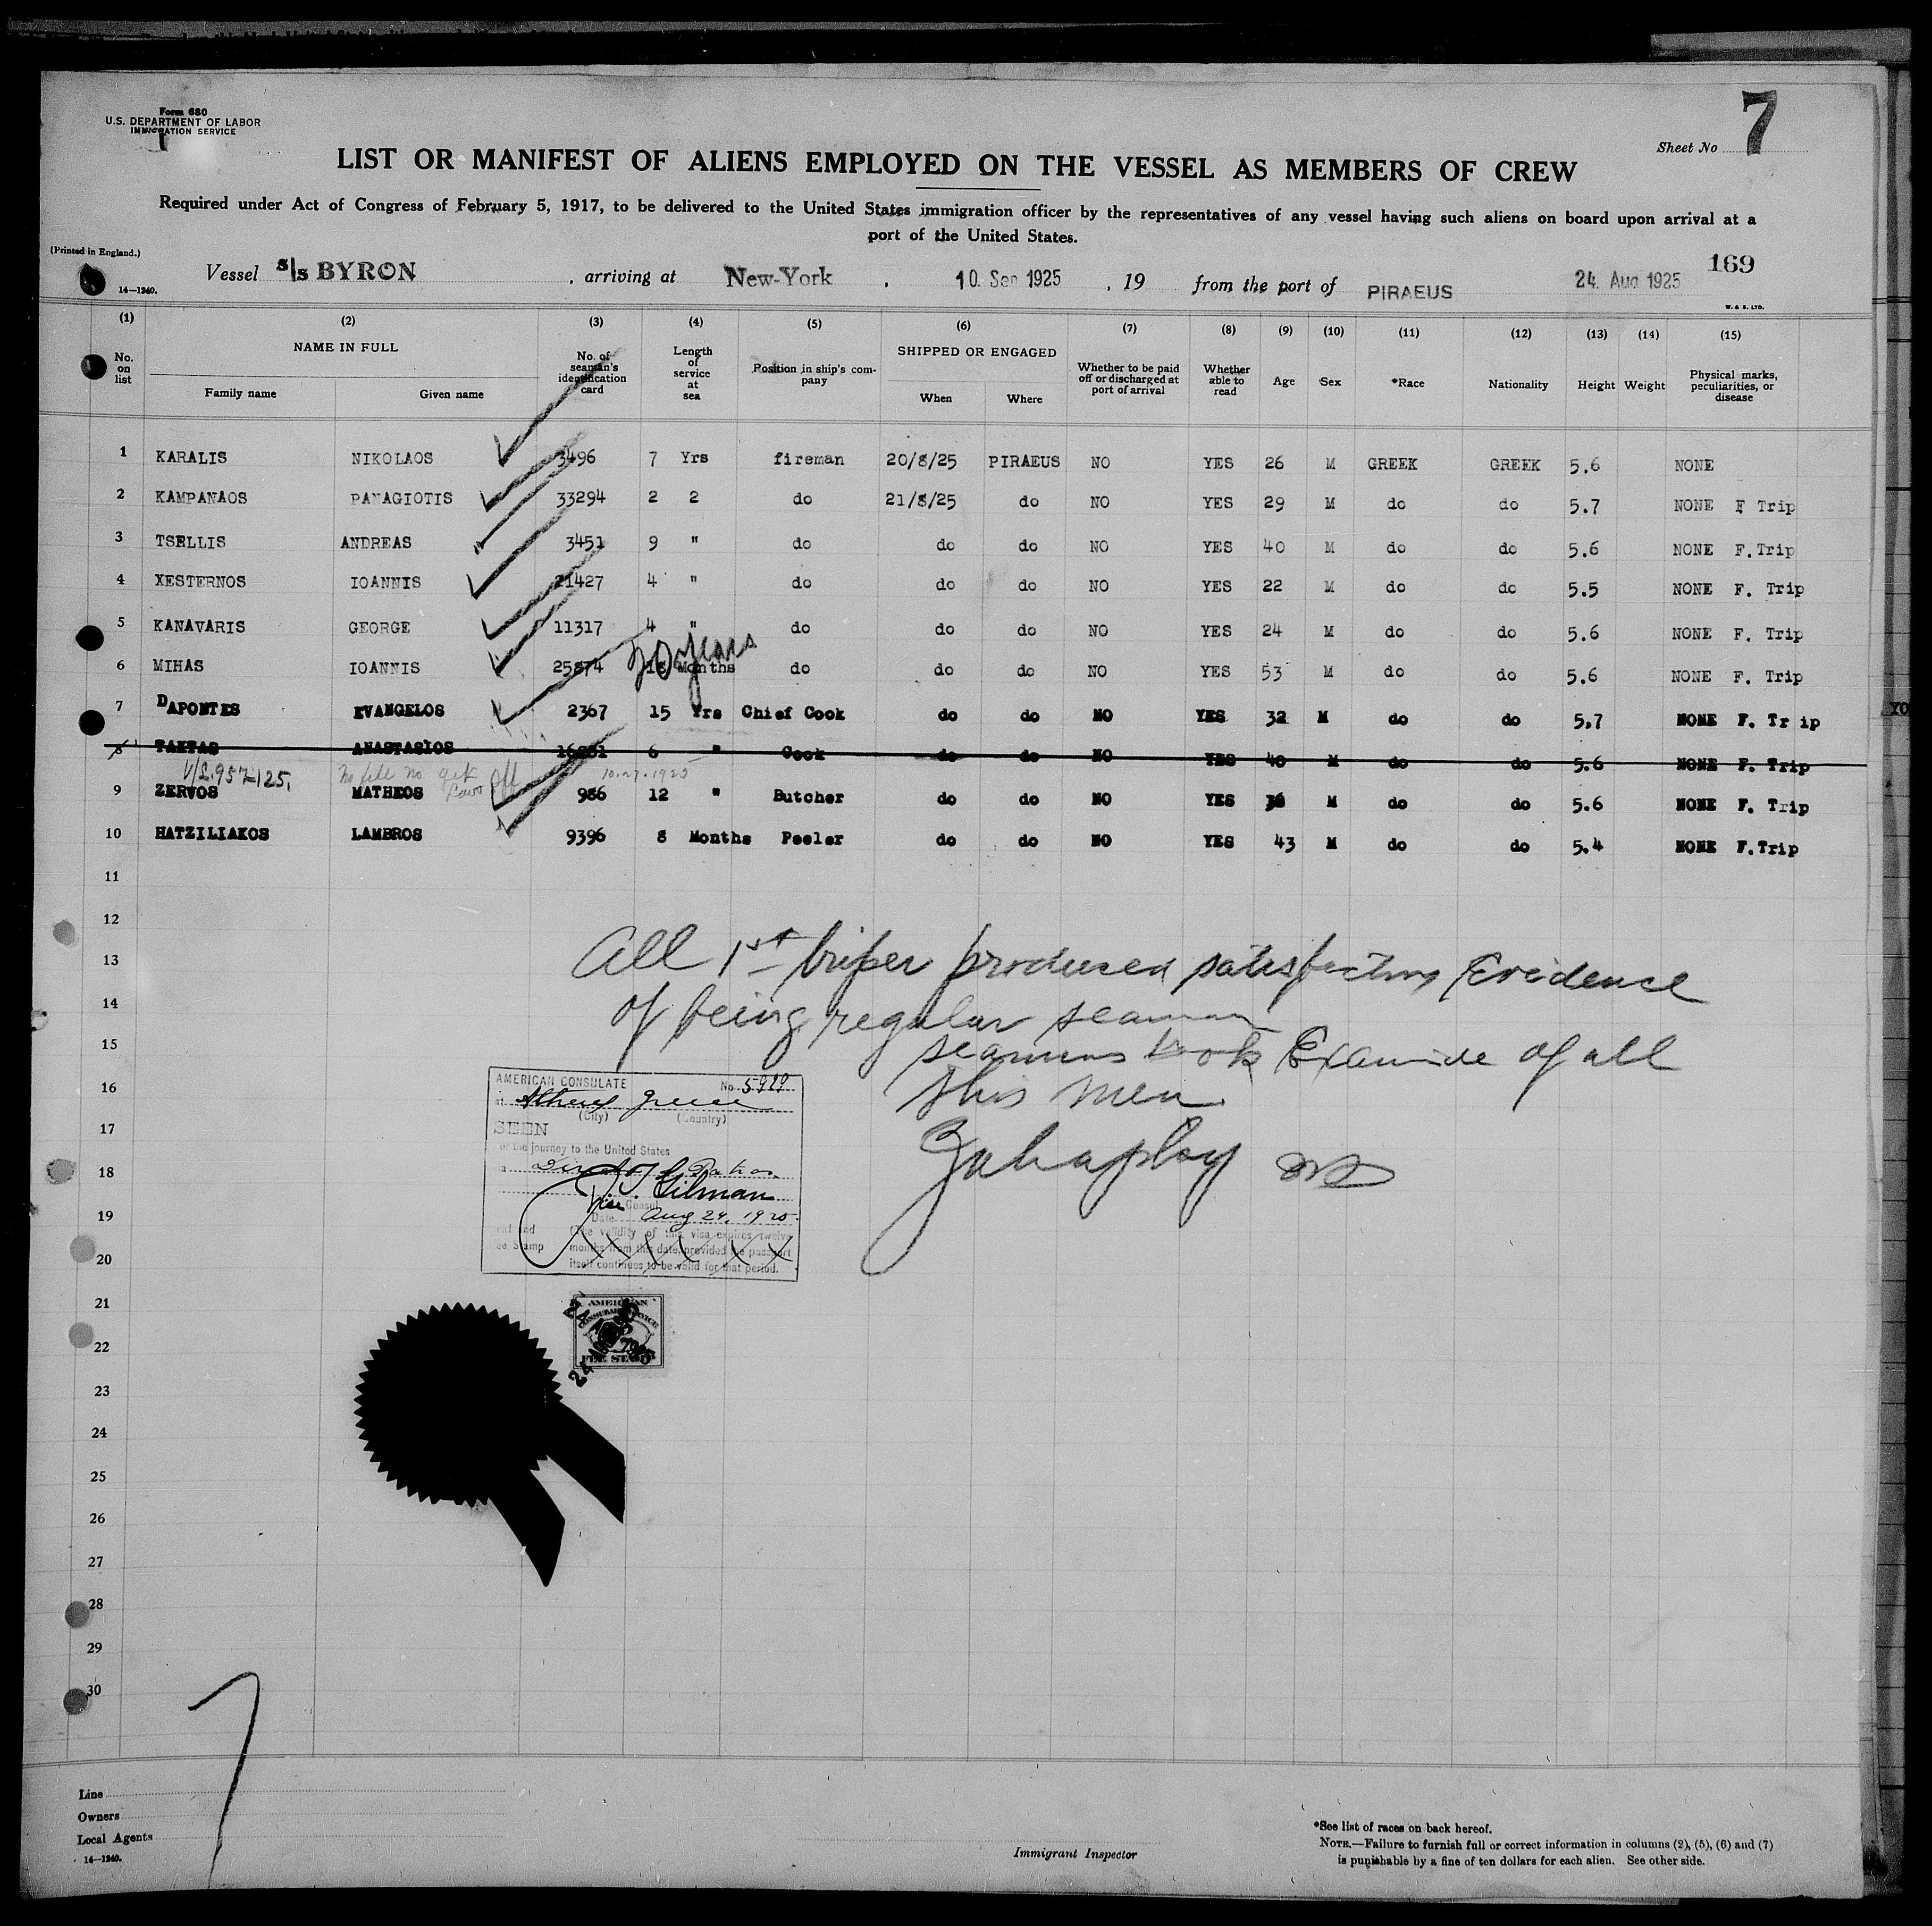 Form 680
U.S. DEPARTMENT OF LABOR
IMMIGRATION SERVICE
Sheet No 7
LIST OR MANIFEST OF ALIENS EMPLOYED ON THE VESSEL AS MEMBERS OF CREW
Required under Act of Congress of February 5, 1917, to be delivered to the United States immigration officer by the representatives of any vessel having such aliens on board upon arrival at a
port of the United States.
(Printed in England.)
169
Vessel s/s BYRON , arriving at New-York , 10. Sep 1925 , 19 from the port of PIRAEUS 24. Aug 1925
14—1240.
W. & S. LTD.
(1) (2) (3) (4) (5) (6) (7) (8) (9) (10) (11) (12) (13) (14) (15)
No. on list NAME IN FULL Family name Given name No. of seaman's identification card Length of service at sea Position in ship's company SHIPPED OR ENGAGED When Where Whether to be paid off or discharged at port of arrival Whether able to read Age Sex *Race Nationality Height Weight Physical marks, peculiarities, or disease
1 KARALIS NIKOLAOS 3496 7 Yrs fireman 20/8/25 PIRAEUS NO YES 26 M GREEK GREEK 5.6 NONE
2 KAMPANAOS PANAGIOTIS 33294 2 2 do 21/8/25 do NO YES 29 M do do 5.7 NONE F Trip
3 TSELLIS ANDREAS 3451 9 " do do do NO YES 40 M do do 5.6 NONE F.Trip
4 XESTERNOS IOANNIS 21427 4 " do do do NO YES 22 M do do 5.5 NONE F. Trip
5 KANAVARIS GEORGE 11317 4 " do do do NO YES 24 M do do 5.6 NONE F. Trip
20 years
6 MIHAS IOANNIS 25874 18 Months do do do NO YES 53 M do do 5.6 NONE F. Trip
7 DAPONTES EVANGELOS 2367 15 Yrs Chief Cook do do NO YES 32 M do do 5,7 NONE F. Tr ip
8 TAKTAS ANASTASIOS 6 " Cook do do NO YES 40 M do do 5.6 NONE F. Trip
10.27.1925
9 ZERVOS MATHEOS 986 12 " Butcher do do NO YES 36 M do do 5.6 NONE F. Trip
10 HATZILIAKOS LAMBROS 9396 8 Months Peeler do do NO YES 43 M do do 5.4 NONE F.Trip
11
12
13
14
15
16
17
18
19
20
21
22
23
24
25
26
27
28
29
30
All 1st triper produced satisfactory Evidence
of being regular seaman
seamans book Examide of all
this men
AMERICAN CONSULATE No. 5989
at Athens Greece
(City) (Country)
SEEN
for the journey to the United States
Gilman
Vice Consul
Date Aug 24, 1925
(The validity of this visa expires twelve
months from this date, provided the passport
itself continues to be valid for that period.
AMERICAN
CONSULAR SERVICE
FEE STAMP
7
Line
Owners
Local Agents
14—1240.
Immigrant Inspector
*See list of races on back hereof.
NOTE.—Failure to furnish full or correct information in columns (2), (5), (6) and (7)
is punishable by a fine of ten dollars for each alien. See other side.